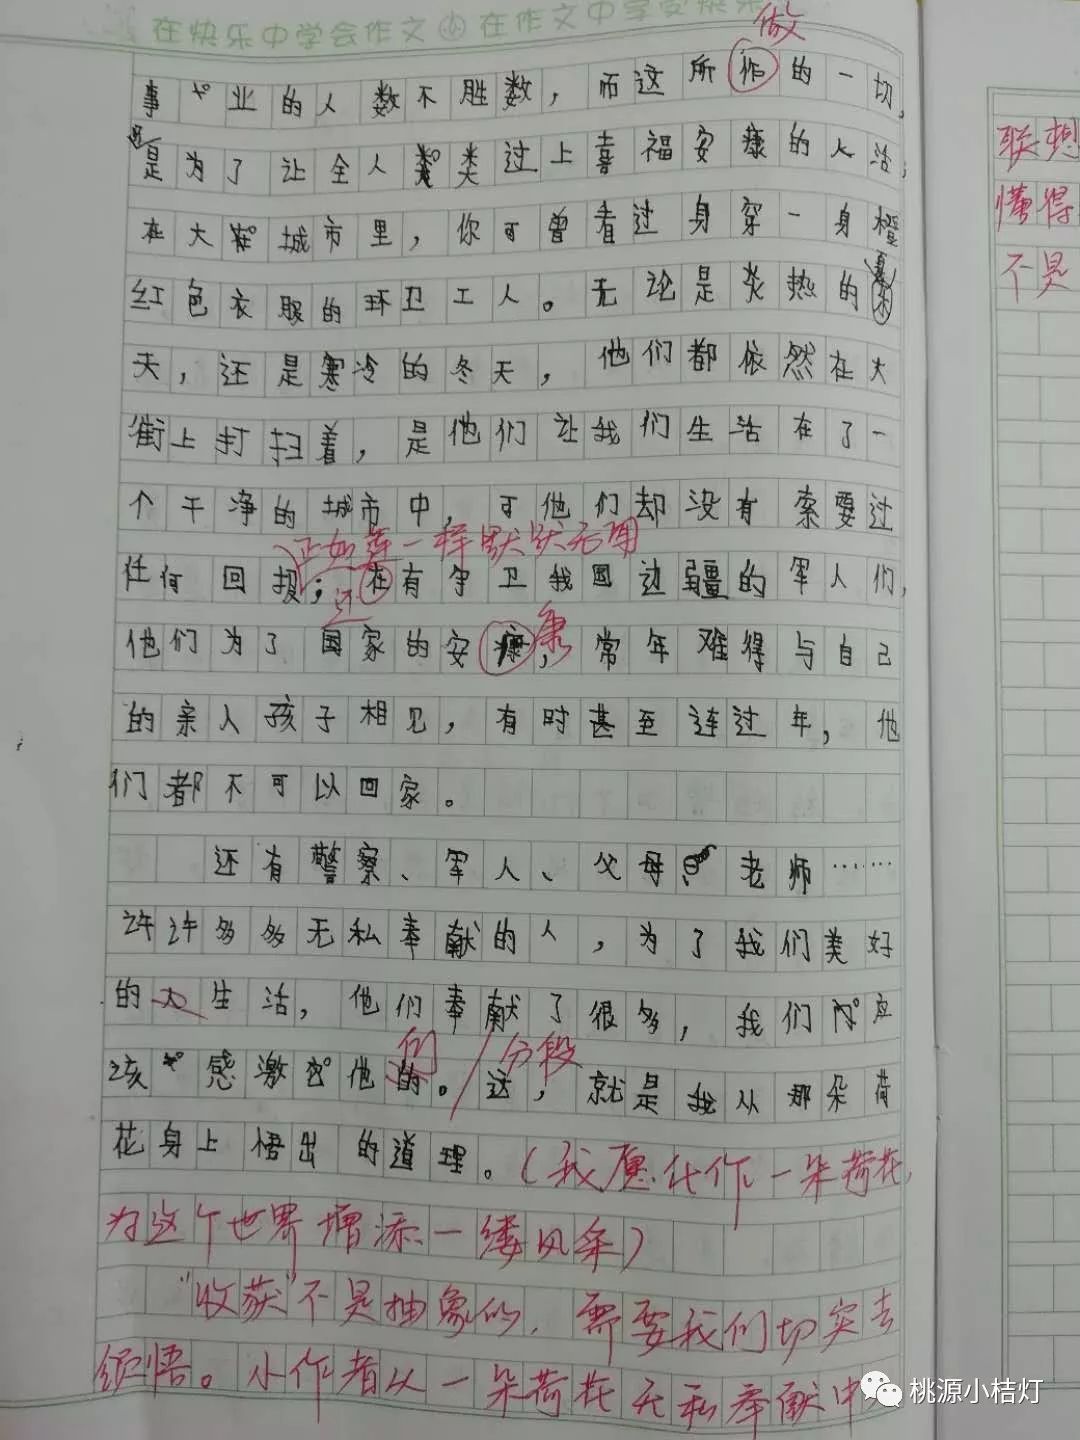 在快乐中学会作文 在作文中享受快乐
做
事业的人数不胜数，而这所作的一切，
还
是为了让全人类过上喜福安康的人活，
在大城市里，你可曾看过身穿一身橙
红色衣服的环卫工人。无论是炎热的
夏
天，还是寒冷的冬天，他们都依然在大
街上打扫着，是他们让我们生活在了一
个干净的城市中，可他们却没有索要过
正如莲一样默默无闻
任何回报；在有守卫我国边疆的军人们，
还
他们为了国家的安康，常年难得与自己
康
的亲人孩子相见，有时甚至连过年，他
们都不可以回家。
还有警察、军人、父母、老师……
许许多多无私奉献的人，为了我们美好
的人生活，他们奉献了很多，我们应
们 分段
该感激他的。这，就是我从那朵荷
花身上悟出的道理。（我愿化作一朵荷花，
为这个世界增添一缕风采）
“收获”不是抽象的，需要我们切实去
领悟。小作者从一朵荷花无私奉献中
联想
懂得
不是
桃源小桔灯